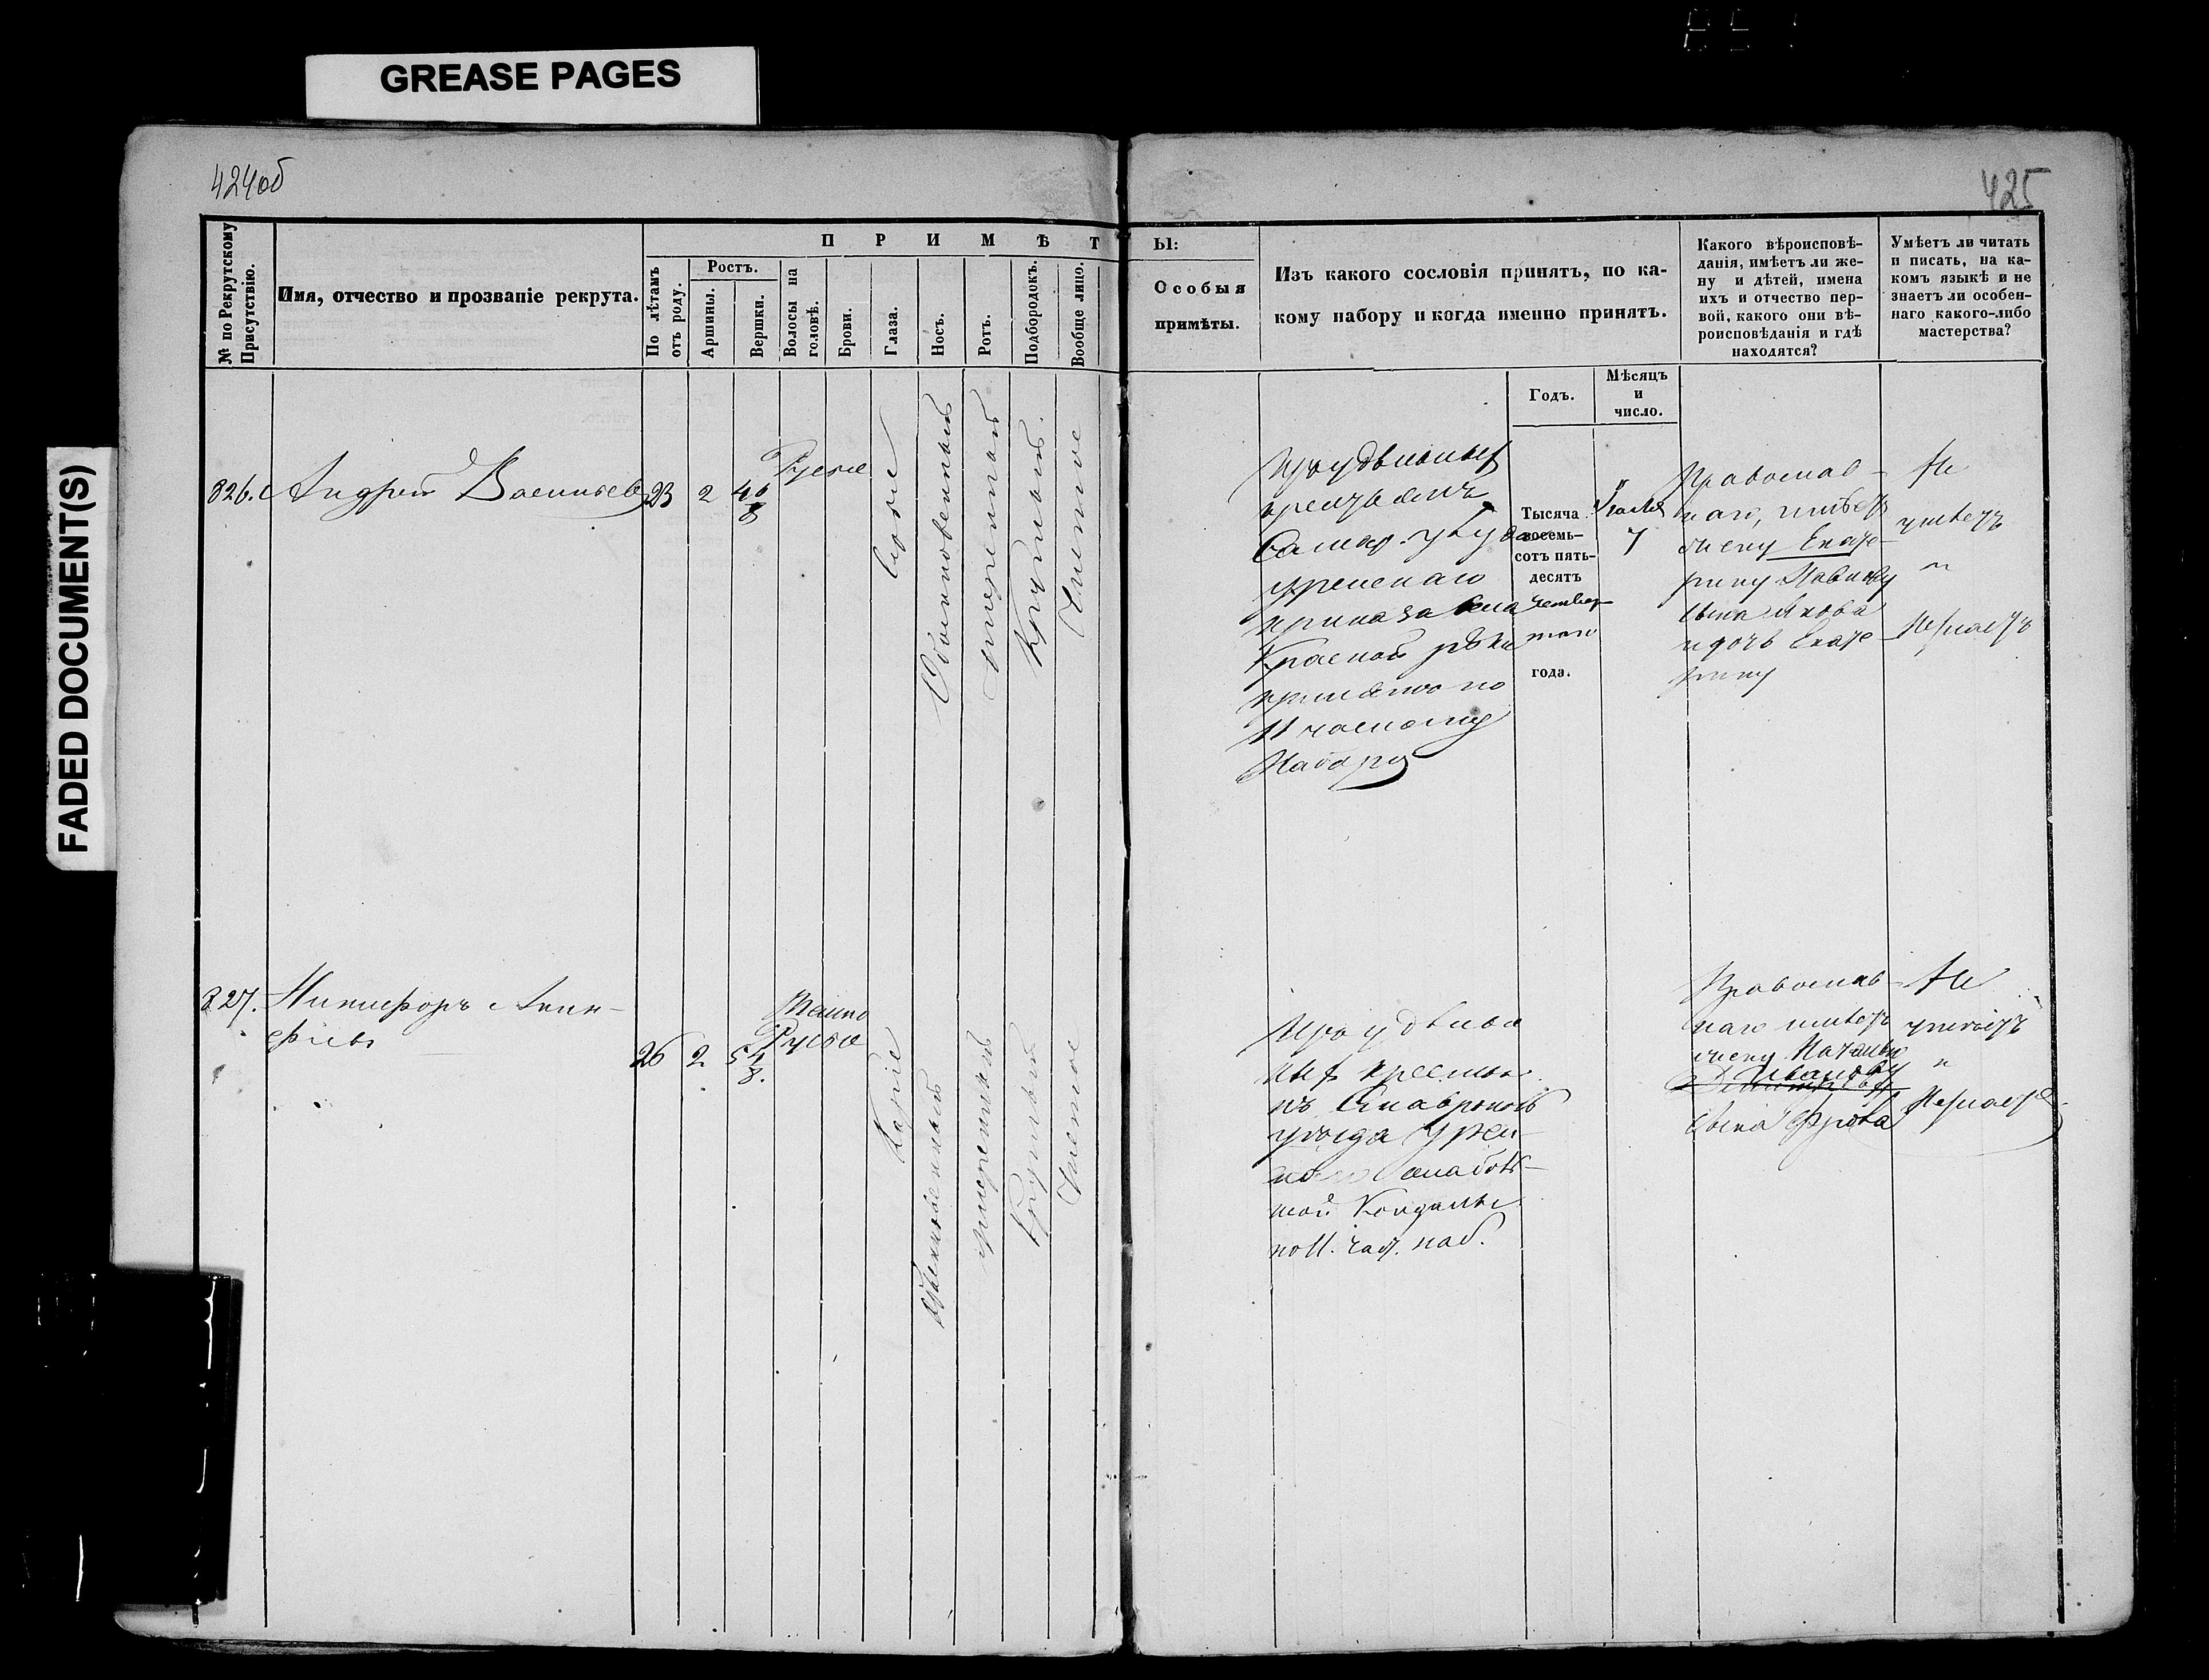 GREASE PAGES
FADED DOCUMENT(S)
424об
425
№ по Рекрутскому Присутствію.
Имя, отчество и прозваніе рекрута.
П Р И М Ѣ Т Ы:
По лѣтамъ отъ роду.
Ростъ.
Аршины.
Вершки.
Волосы на головѣ.
Брови.
Глаза.
Носъ.
Ротъ.
Подбородокъ.
Вообще лицо.
Особыя
примѣты.
Изъ какого сословія принятъ, по ка-
кому набору и когда именно принятъ.
Годъ.
Мѣсяцъ
и
число.
Какого вѣроисповѣ-
данія, имѣетъ ли же-
ну и дѣтей, имена
ихъ и отчество пер-
вой, какого они вѣ-
роисповѣданія и гдѣ
находятся?
Умѣетъ ли читать
и писать, на ка-
комъ языкѣ и не
знаетъ ли особен-
наго какого-либо
мастерства?
826. Андрей Васильевъ 23 2 4 6/8
Русые
Сѣрые
Обыкновенный
умеренный
Круглый
Чистое
Изъ удѣльныхъ
крестьянъ
Самар. уѣзда
приказа села
Красной рѣки
принятъ по
11 частному
Набору
Тысяча
восемь-
сотъ пять-
десятъ
четвер-
таго
года.
7
Православ-
наго, имѣетъ
жену Екате-
рину
сына Якова
и дочь Екате-
рину
Не
умѣетъ
"
Незнаетъ
827. Никифоръ Акин-
фіевъ
26 2 5 4/8.
Темно
Русые
Каріе
Обыкновенный
умеренный
Круглый
Чистое
Изъ удѣльн
ныхъ крестья
нъ Ставрополь
уѣзда
шой Кондалы
по 11. част. наб.
Православ-
наго имѣетъ
жену Наталью
Иванову
сына Фрола
Не
умѣетъ
"
Незнаетъ